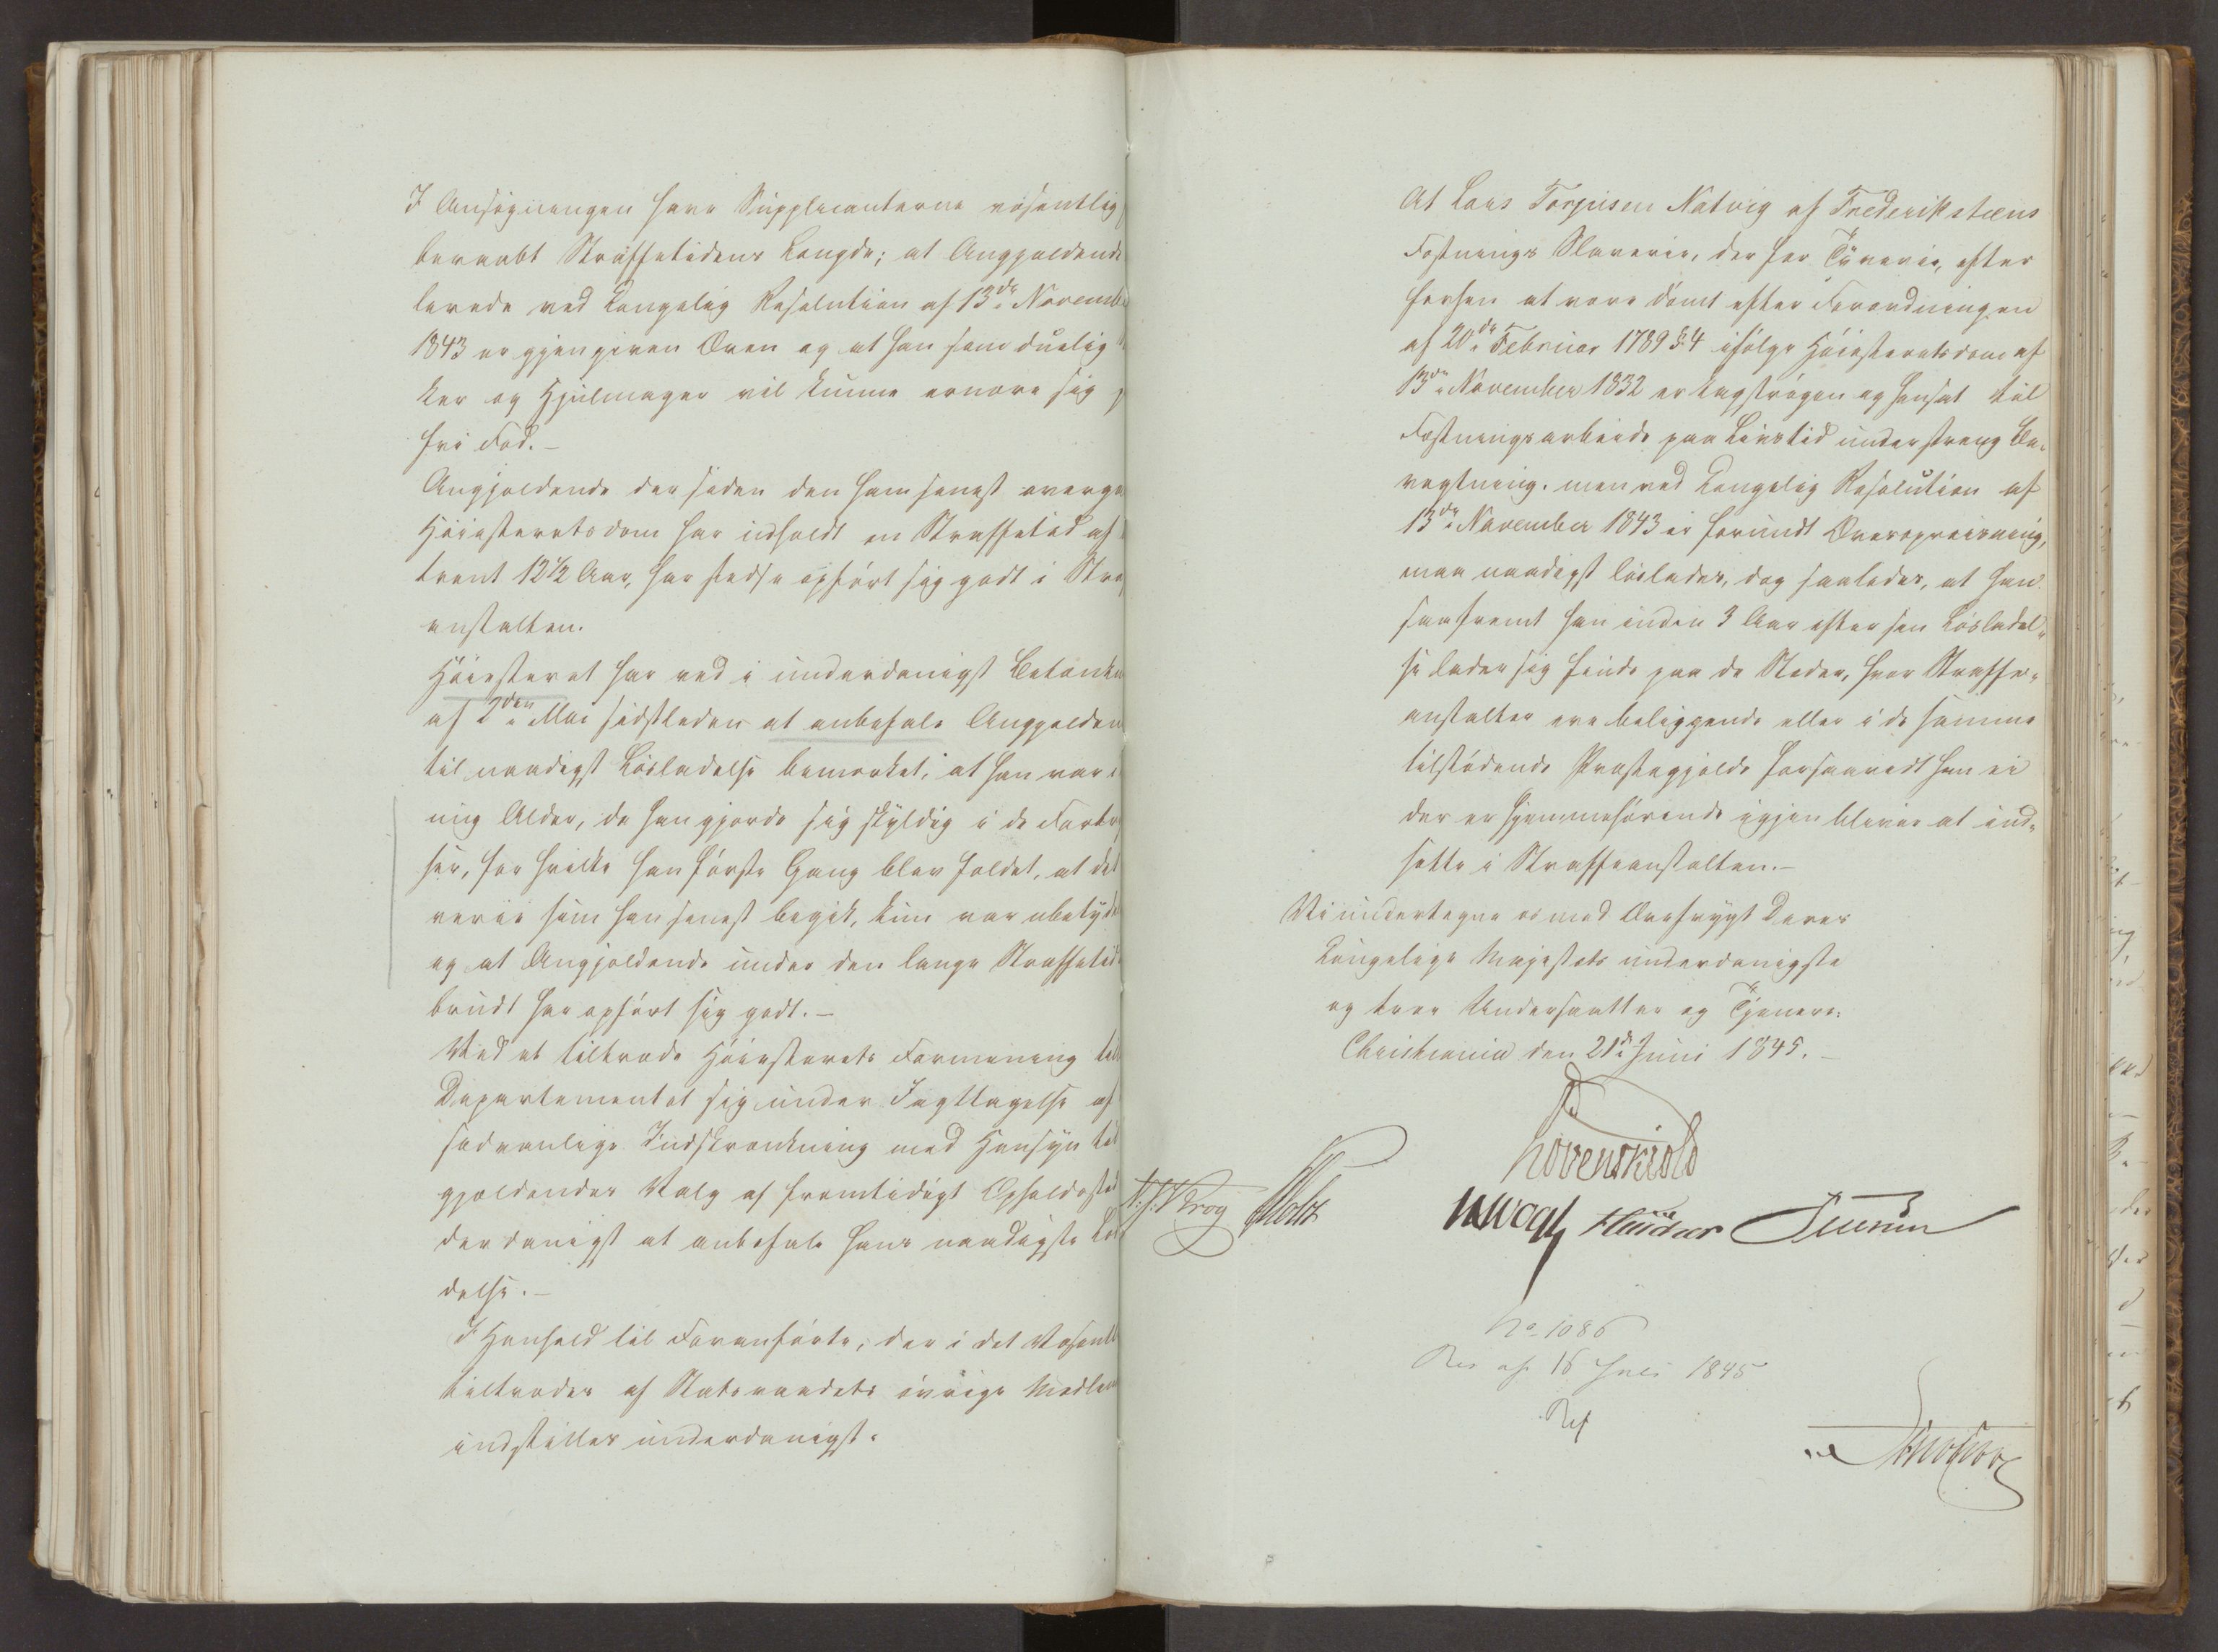 I Ansøgningen have Supplicanterne væsentlig
beraabt Straffetidens Længde; at Angjældende
lerede ved Kongelig Resolution af 13de Novemb
1843 er gjengiven Æren og at han som duelig
ker og Hjulmager vil kunne ernære sig p
fri Fod.-
Angjældende der siden den ham senest overga
Høiesteretsdom har udholdt en Straffetid af
trent 12½ Aar, har stedse opført sig godt i Stra
anstalten.
Høiesteret har ved i underdanigst Betænkn
af 2den Mai sidstleden at anbefale Angjælden
til naadigst Løsladelse bemærket, at han var i
ung Alder, da han gjorde sig skyldig i de Forbry
ser, for hvilke han første Gang blev fældet, at det
verie som han senest begik, kun var ubetyde
og at Angjældende under den lange Straffetid
brudt har opført sig godt.-
Ved at tiltræde Høiesterets Formening till
Departementet sig under Iagttagelse af
sædvanlige Indskrænkning med Hensyn til
gjældendes Valg af fremtidigt Opholdssted
derdanigst at anbefale hans naadigste Løs
delse.-
I Henhold til Foranførte, der i det Væsentl
tiltrædes af Statsraadets øvrige Medlem
indstilles underdanigst:
At Lars Torjusen Natvig af Frederikstens
Fæstnings Slaverie, der for Tyverie, efter
forhen at være dømt efter Forordningen
af 20de Februar 1789 § 4 ifølge Høiesteretsdom af
13de November 1832 er kagstrøgen og hensat til
Fæstningsarbeide paa Livstid under streng Be-
vogtning, men ved Kongelig Resolution af
13de November 1843 er forundt Æresopreisning,
maa naadigst løslades, dog saaledes, at han
saafremt han inden 3 Aar efter sin Løsladel-
se lader sig finde paa de Steder, hvor Straffe-
anstalter ere beliggende eller i de samme
tilstødende Præstegjælde forsaavidt han ei
der er hjemmehørende igjen bliver at ind-
sætte i Straffeanstalten.-
Vi undertegne os med Ærefrygt Deres
Kongelige Majestæts underdanigste
og troe Undersaatter og Tjenere.
Christiania den 21de Juni 1845.-
Løvenskiold
Krog Holst
Vogt
No 1086
Res af 16 Juli 1845
Ref